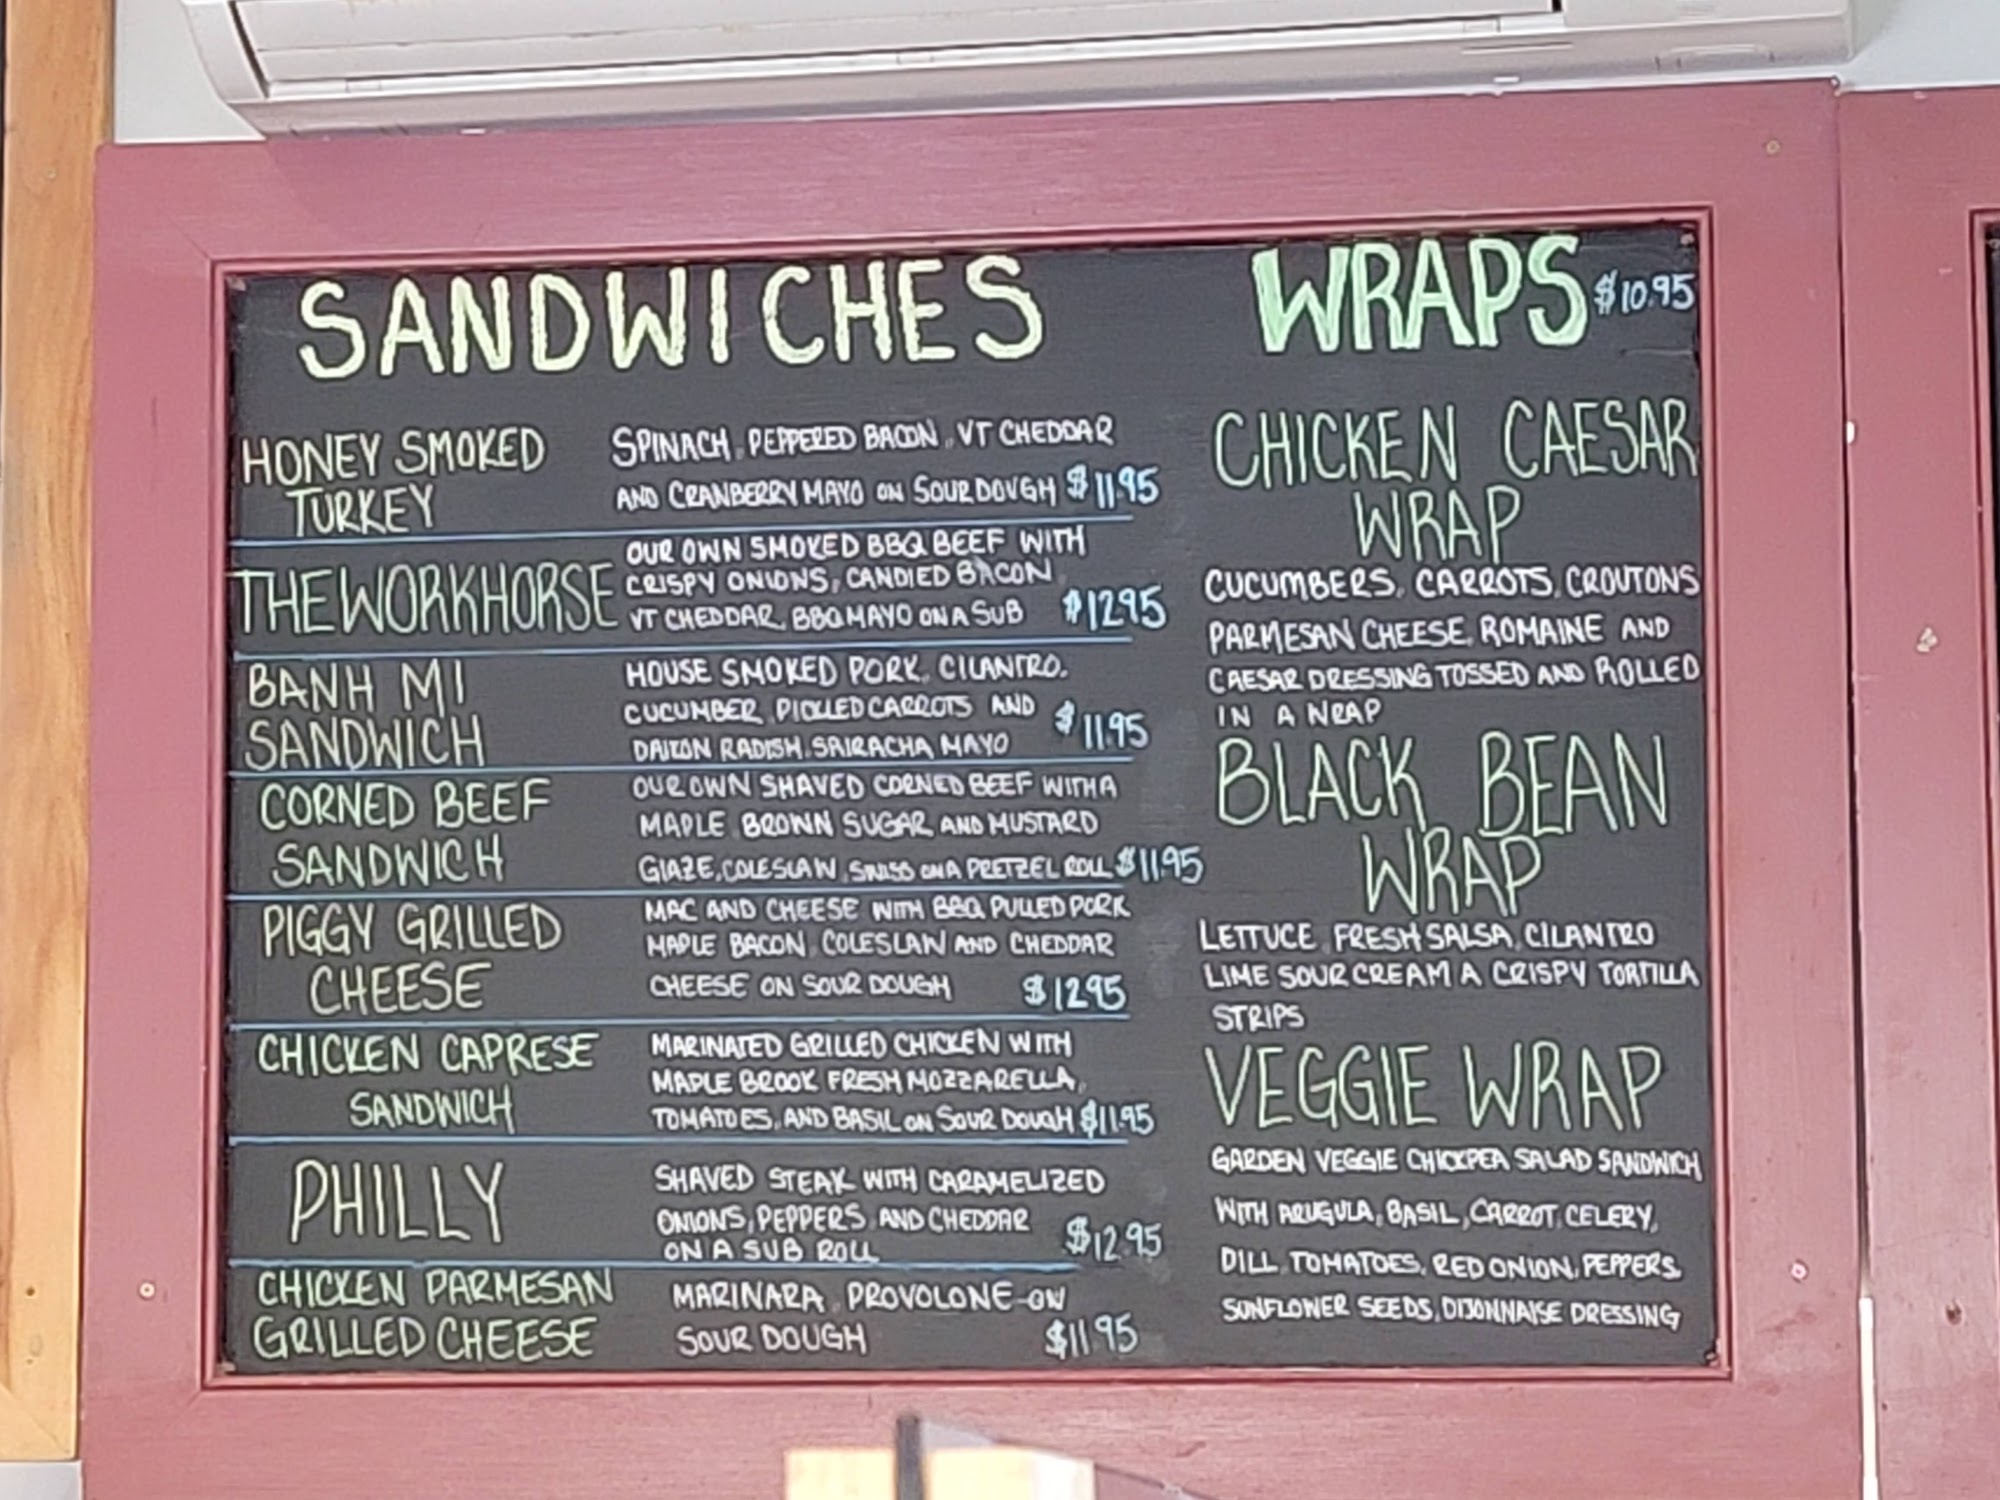 SANDWICHES
HONEY SMOKED
TURKEY
SPINACH, PEPPERED BACON, VT CHEDDAR
AND CRANBERRY MAYO ON SOURDOUGH $11.95
THE WORKHORSE
OUR OWN SMOKED BBQ BEEF WITH
CRISPY ONIONS, CANDIED BACON,
VT CHEDDAR, BBQ MAYO ON A SUB $12.95
BANH MI
SANDWICH
HOUSE SMOKED PORK, CILANTRO,
CUCUMBER, PICKLED CARROTS AND
DAIKON RADISH, SRIRACHA MAYO $11.95
CORNED BEEF
SANDWICH
OUR OWN SHAVED CORNED BEEF WITH A
MAPLE BROWN SUGAR AND MUSTARD
GLAZE, COLESLAW, SWISS ON A PRETZEL ROLL $11.95
PIGGY GRILLED
CHEESE
MAC AND CHEESE WITH BBQ PULLED PORK
MAPLE BACON, COLESLAW AND CHEDDAR
CHEESE ON SOUR DOUGH $12.95
CHICKEN CAPRESE
SANDWICH
MARINATED GRILLED CHICKEN WITH
MAPLE BROOK FRESH MOZZARELLA,
TOMATOES, AND BASIL ON SOUR DOUGH $11.95
PHILLY
SHAVED STEAK WITH CARAMELIZED
ONIONS, PEPPERS, AND CHEDDAR
ON A SUB ROLL $12.95
CHICKEN PARMESAN
GRILLED CHEESE
MARINARA, PROVOLONE ON
SOUR DOUGH $11.95
WRAPS $10.95
CHICKEN CAESAR
WRAP
CUCUMBERS, CARROTS, CROUTONS
PARMESAN CHEESE, ROMAINE AND
CAESAR DRESSING TOSSED AND ROLLED
IN A WRAP
BLACK BEAN
WRAP
LETTUCE, FRESH SALSA, CILANTRO
LIME SOUR CREAM & CRISPY TORTILLA
STRIPS
VEGGIE WRAP
GARDEN VEGGIE CHICKPEA SALAD SANDWICH
WITH ARUGULA, BASIL, CARROT, CELERY,
DILL, TOMATOES, RED ONION, PEPPERS,
SUNFLOWER SEEDS, DIJONNAISE DRESSING